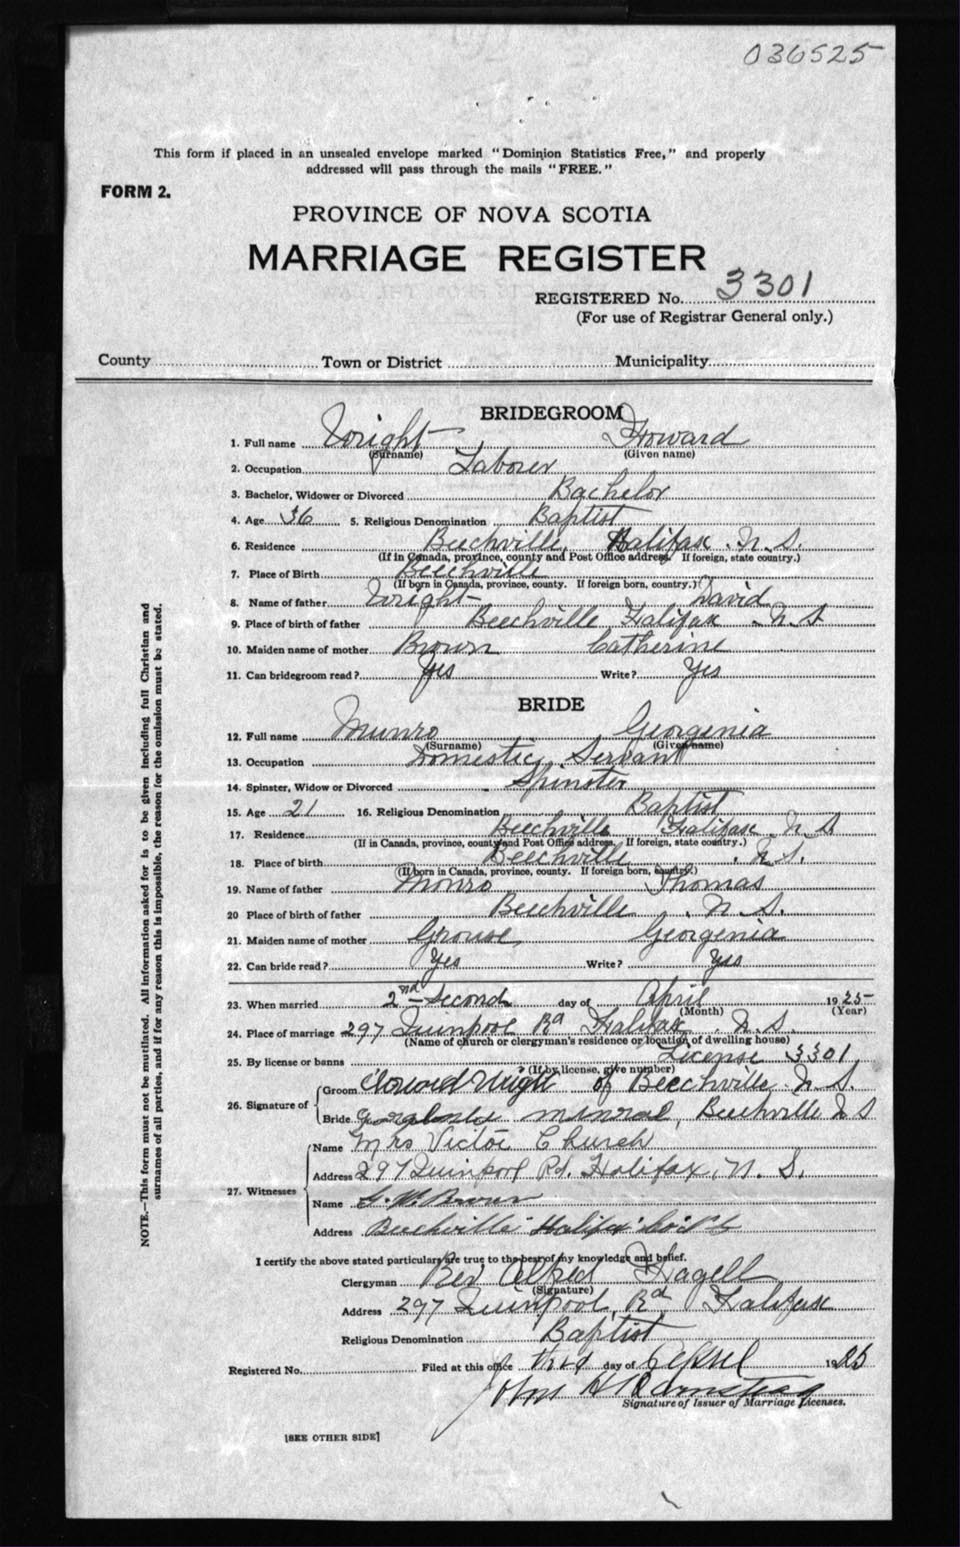 036525
This form if placed in an unsealed envelope marked "Dominion Statistics Free," and properly
addressed will pass through the mails "FREE."
FORM 2.
PROVINCE OF NOVA SCOTIA
MARRIAGE REGISTER
REGISTERED No. 3301
(For use of Registrar General only.)
County Town or District Municipality
BRIDEGROOM
1. Full name Wright Howard
(Surname) (Given name)
2. Occupation Laborer
3. Bachelor, Widower or Divorced Bachelor
4. Age 36 5. Religious Denomination Baptist
6. Residence Beechville, Halifax. N. S.
(If in Canada, province, county and Post Office address. If foreign, state country.)
7. Place of Birth Beechville
(If born in Canada, province, county. If foreign born, country.)
8. Name of father Wright David
9. Place of birth of father Beechville Halifax N. S
10. Maiden name of mother Brown Catherine
11. Can bridegroom read? Yes Write? Yes
BRIDE
12. Full name Munro Georgenia
(Surname) (Given name)
13. Occupation Domestic Servant
14. Spinster, Widow or Divorced Spinster
15. Age 21 16. Religious Denomination Baptist
17. Residence Beechville Halifax. N. S
(If in Canada, province, county and Post Office address. If foreign, state country.)
18. Place of birth Beechville. N. S.
(If born in Canada, province, county. If foreign born, country.)
19. Name of father Monro Thomas
20 Place of birth of father Beechville. N. S.
21. Maiden name of mother Grouse Georgenia
22. Can bride read? Yes Write? Yes
23. When married 2nd - Second day of April 1925
(Month) (Year)
24. Place of marriage 297 Quinpool Rd Halifax. N. S.
(Name of church or clergyman's residence or location of dwelling house)
25. By license or banns License 3301
? (If by license, give number)
26. Signature of Groom Howard Wright of Beechville N. S.
Bride Beechville N S
27. Witnesses Name Mrs Victor Church
Address 297 Quinpool Rd. Halifax. N. S.
Name G. W. Brown
Address Beechville Halifax
I certify the above stated particulars are true to the best of my knowledge and belief.
Clergyman Rev Alfred
(Signature)
Address 297 Quinpool Rd Halifax
Religious Denomination Baptist
Registered No. Filed at this office third day of April 1925
John H
Signature of Issuer of Marriage Licenses.
[SEE OTHER SIDE]
NOTE.—This form must not be mutilated. All information asked for is to be given including full Christian and
surnames of all parties, and if for any reason this is impossible, the reason for the omission must be stated.